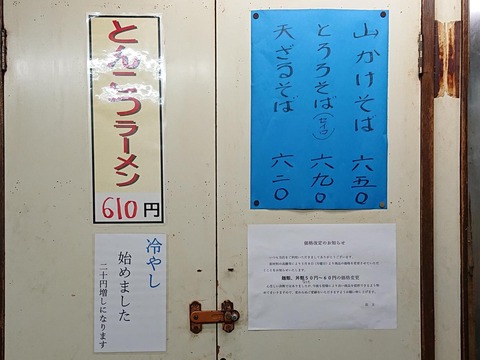 とんこつラーメン
610円
山かけそば 六五〇
とろろそば(セイロ) 六九〇
天ざるそば 六二〇
冷やし
始めました
二十円増しになります
価格改定のお知らせ
麺類、丼類50円~60円の価格変更